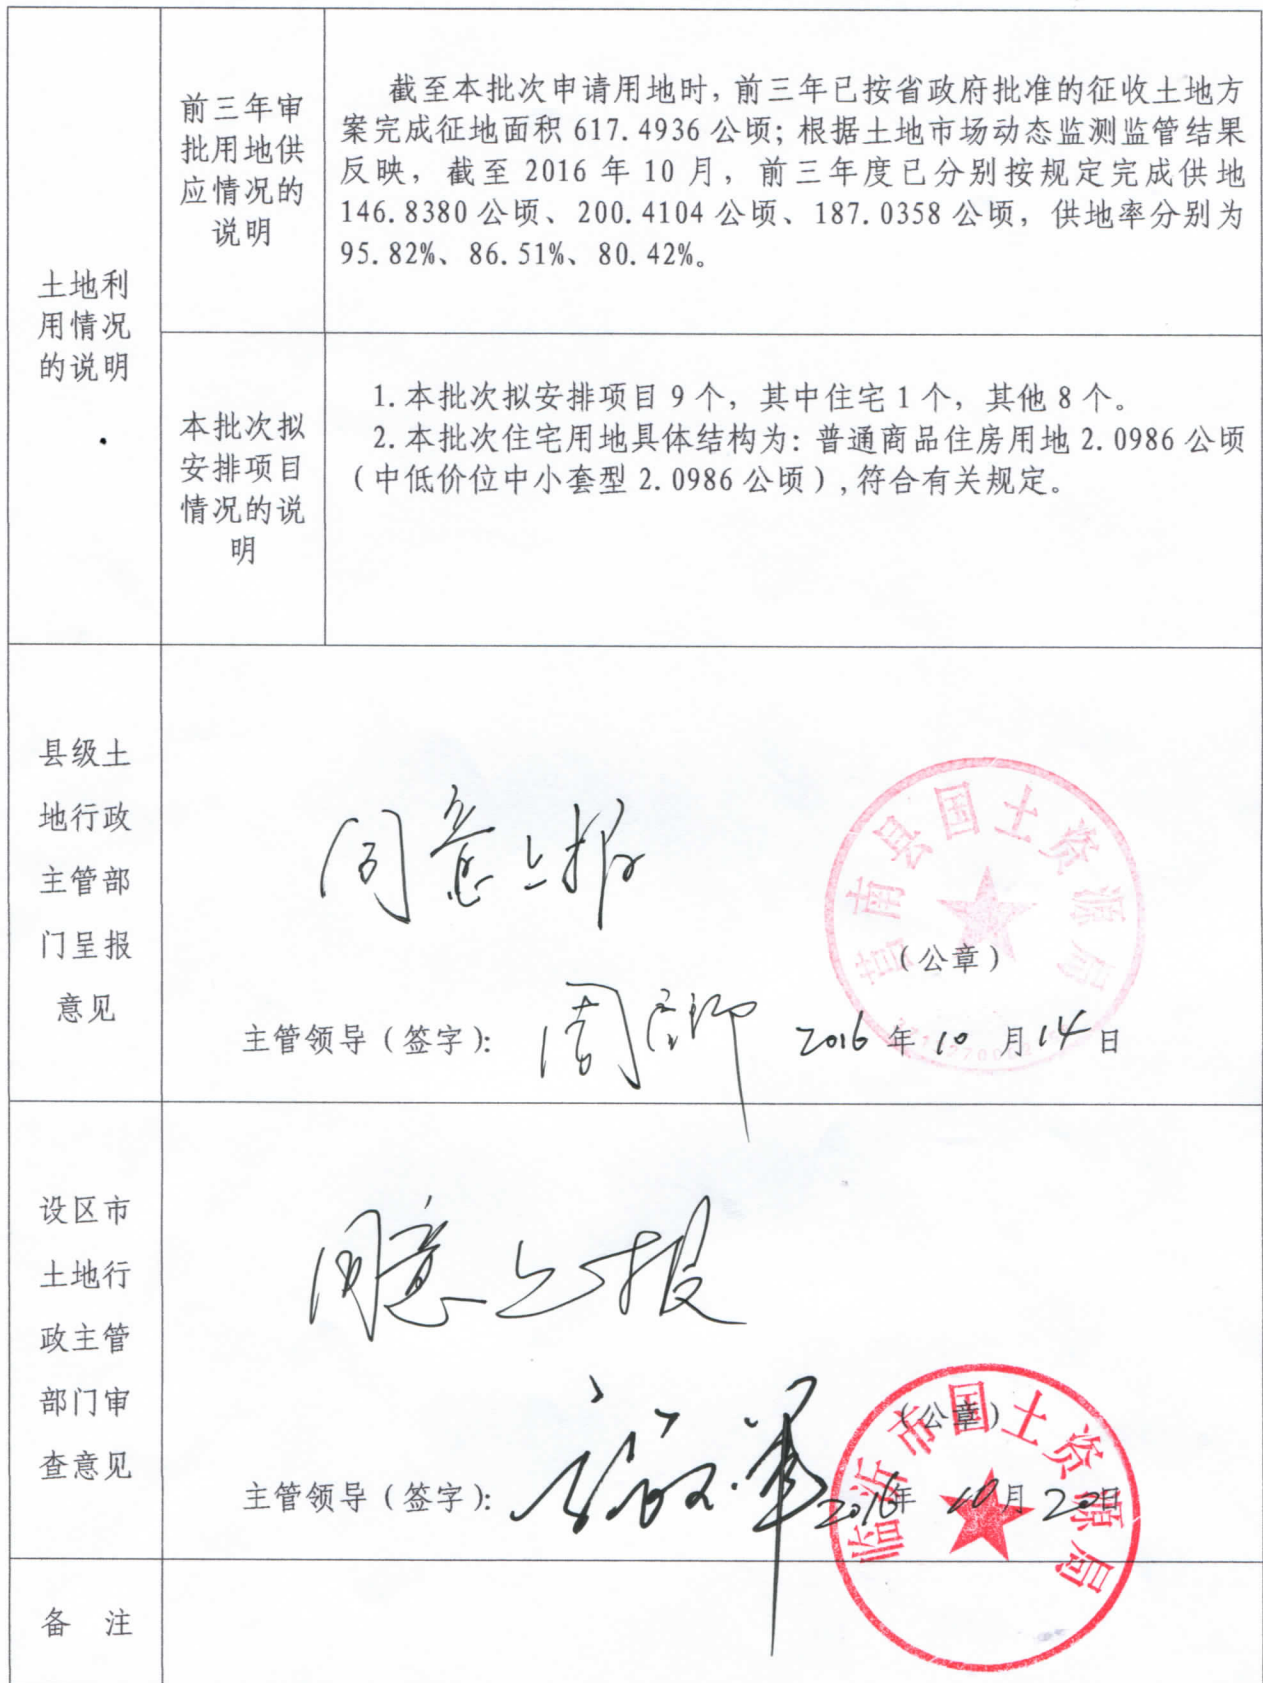 土地利
用情况
的说明
前三年审
批用地供
应情况的
说明
截至本批次申请用地时，前三年已按省政府批准的征收土地方
案完成征地面积 617.4936 公顷；根据土地市场动态监测监管结果
反映，截至 2016 年 10 月，前三年度已分别按规定完成供地
146.8380 公顷、200.4104 公顷、187.0358 公顷，供地率分别为
95.82%、86.51%、80.42%。
本批次拟
安排项目
情况的说
明
1. 本批次拟安排项目 9 个，其中住宅 1 个，其他 8 个。
2. 本批次住宅用地具体结构为：普通商品住房用地 2.0986 公顷
（中低价位中小套型 2.0986 公顷），符合有关规定。
县级土
地行政
主管部
门呈报
意见
同意上报
莒南县国土资源局
（公章）
主管领导（签字）：
2016 年 10 月 14 日
设区市
土地行
政主管
部门审
查意见
同意上报
临沂市国土资源局
（公章）
主管领导（签字）：
2016年 10月 20日
备 注